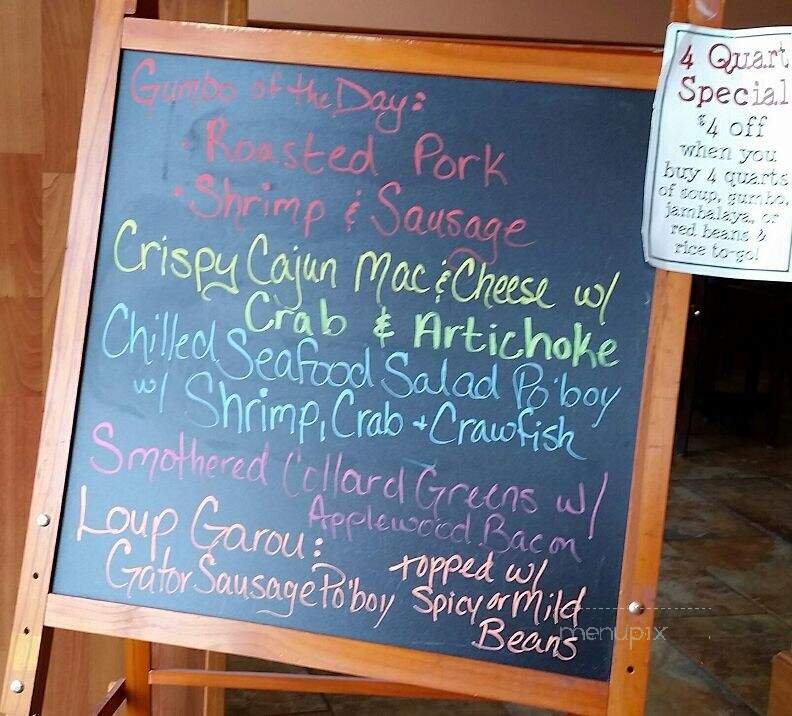 Gumbo of the Day:
• Roasted Pork
• Shrimp & Sausage
Crispy Cajun Mac & Cheese w/
Crab & Artichoke
Chilled Seafood Salad Po'boy
w/ Shrimp, Crab + Crawfish
Smothered Collard Greens w/
Applewood Bacon
Loup Garou:
Gator Sausage Po'boy topped w/
Spicy or Mild
Beans
4 Quart
Special
$4 off
when you
buy 4 quarts
of soup, gumbo,
jambalaya, or
red beans &
rice to-go!
menupix